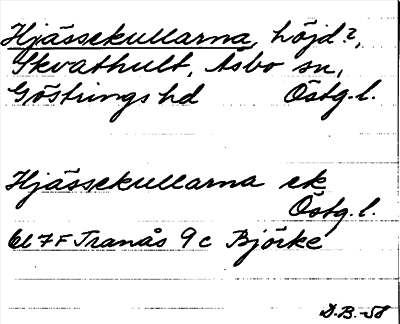 Hjässekullarna, höjd?,
Skvathult, Åsbo sn,
Göstrings hd Östg.l.
Hjässekullarna ek
Östg.l.
bl 7F Tranås 9c Björke
D.B.-58